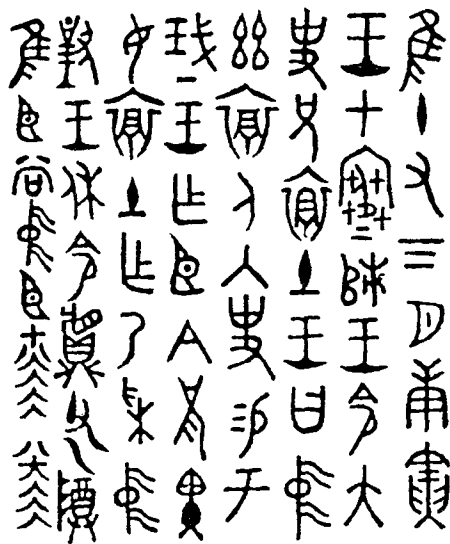 隹十又三月庚寅
王才寒𠂤王令大
史兄土王曰中
茲人入史易于
珷王乍臣今兄畀
女土乍乃采中
對王休令䵼父乙尊
隹臣尚中臣七八六六六六八七六六六六